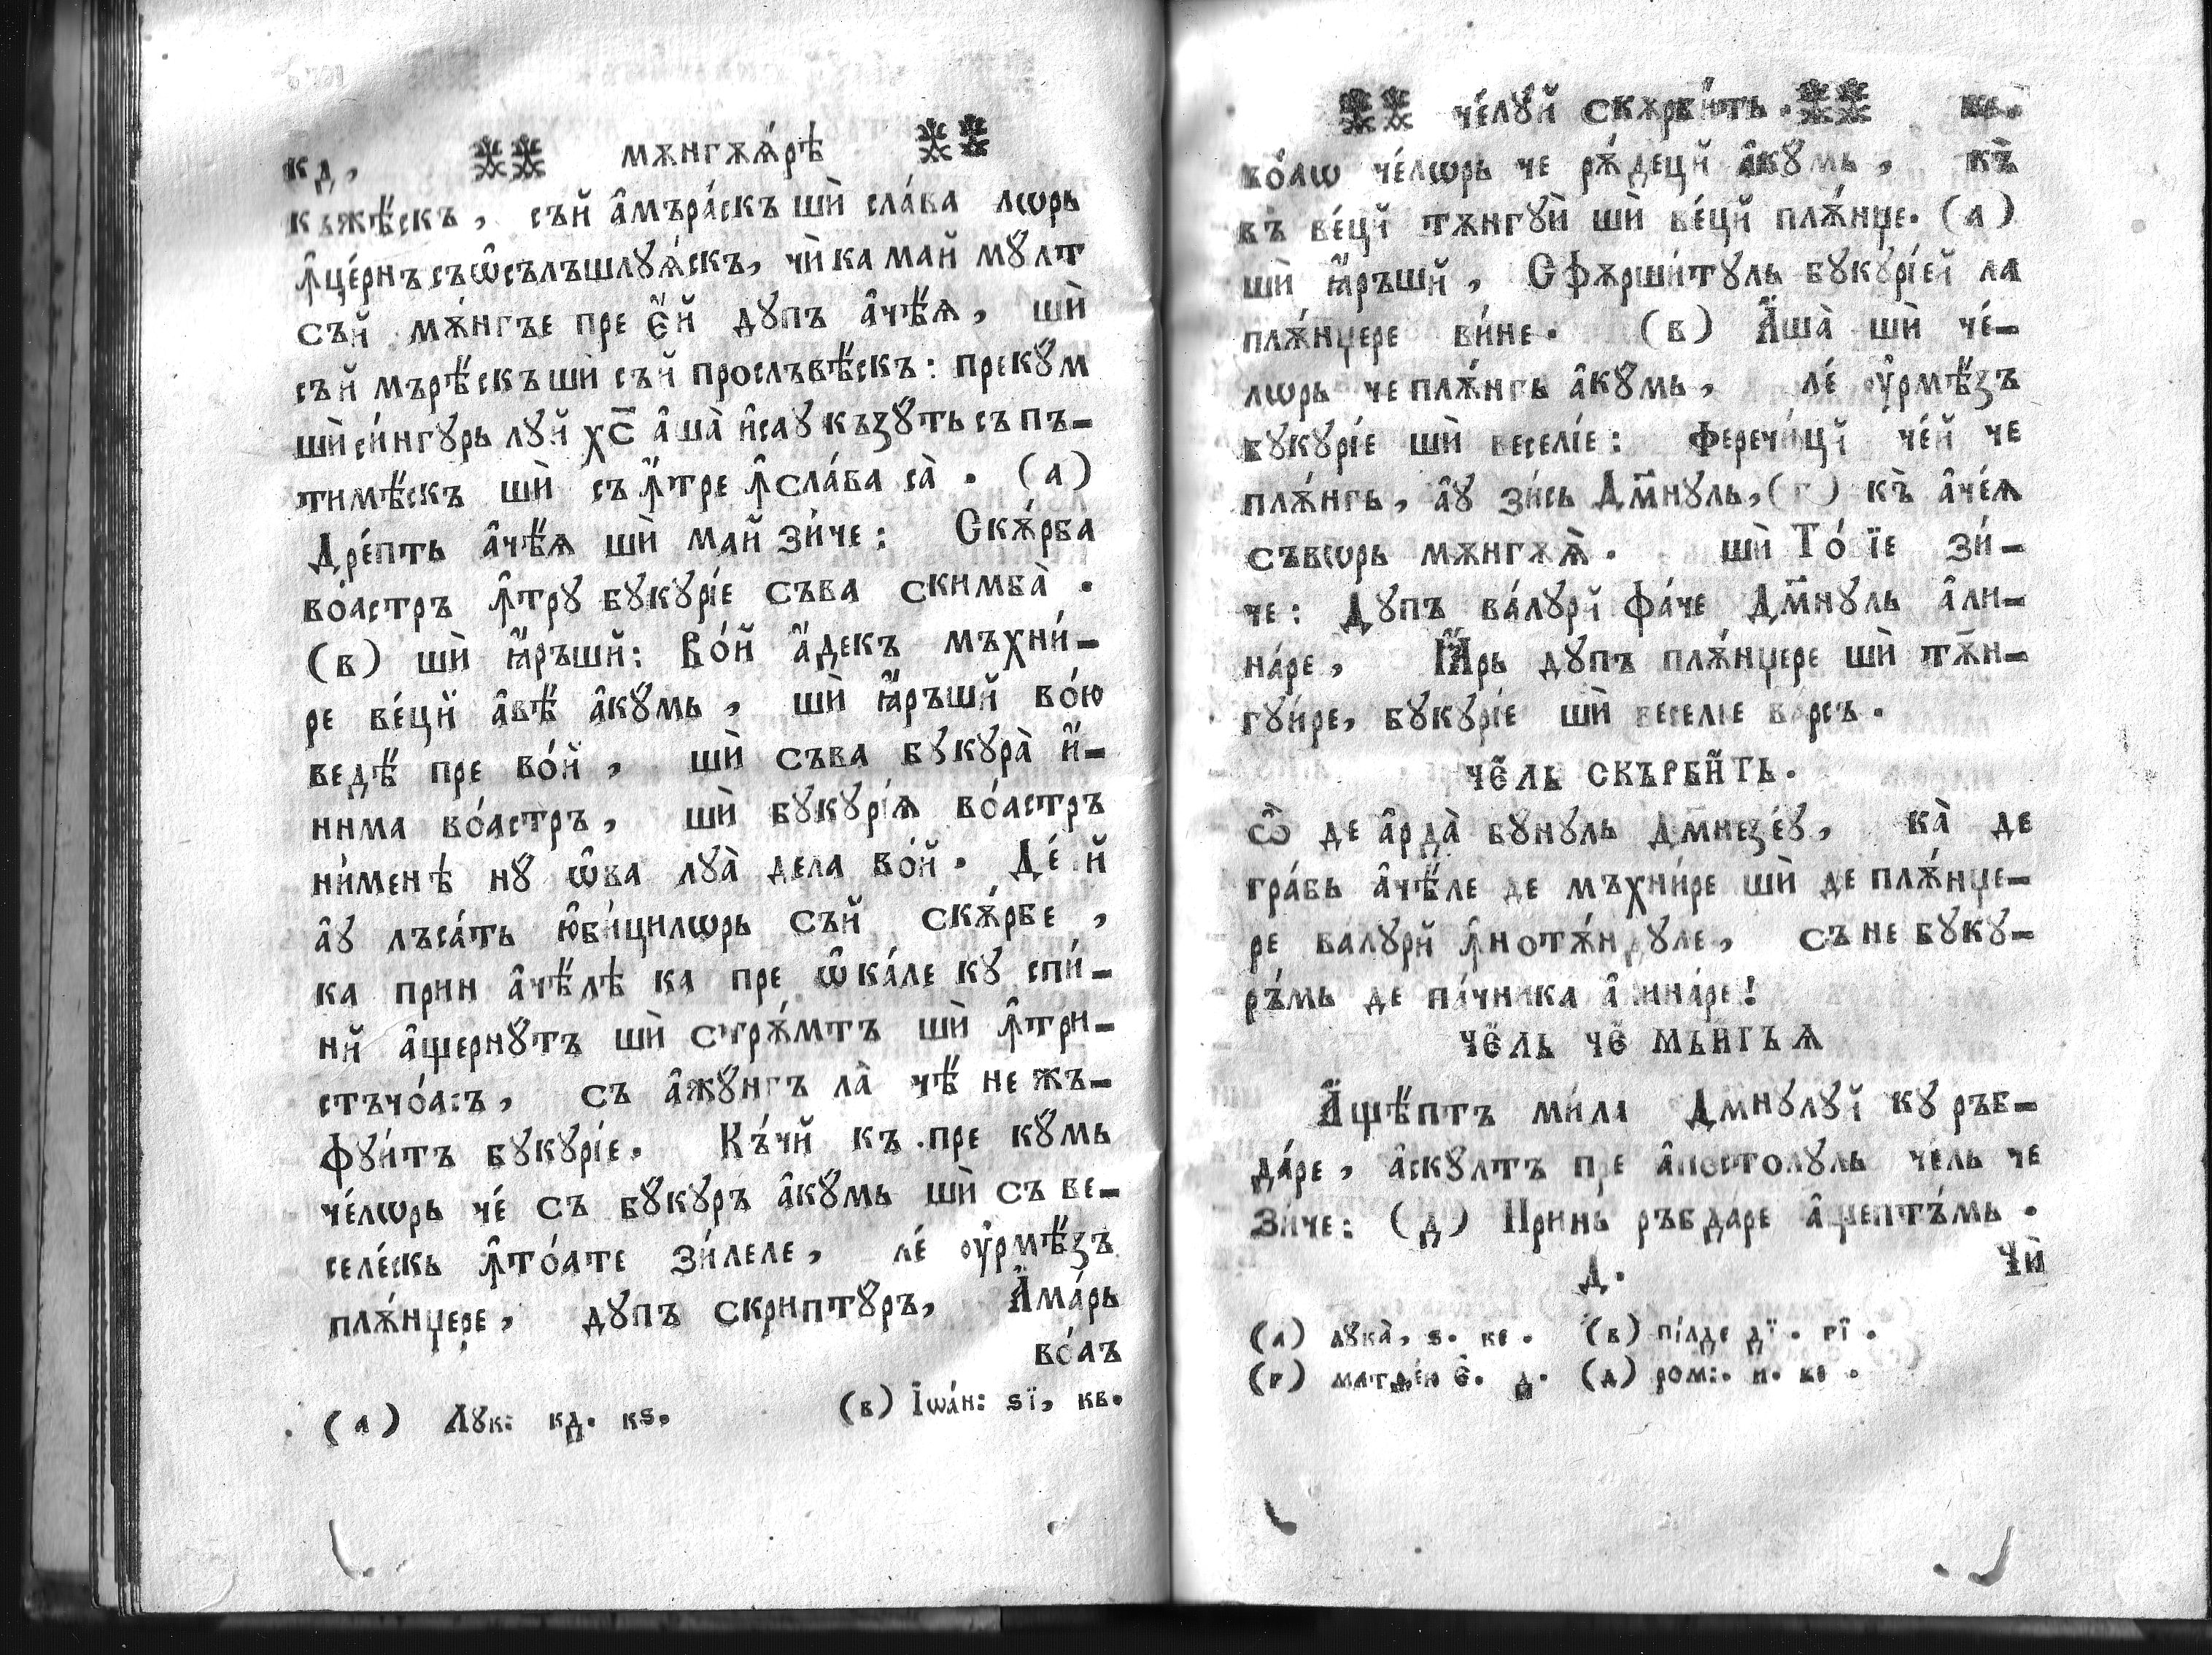 кд,   мѫнгѫѧ́рѣ
къжѣ́скъ, съй а̂мъра́скъ шѝ сла́ва лѡрь
ꙟце́рнъ съѡ̂сълъшлуѧ́скъ, чѝ ка май мꙋ̈лт
съй мѫ́нгъе пре є҆́й дꙋпъ а̂чѣ́ѧ, шѝ
съй мърѣ́скъ шѝ съй прослъвѣ́скъ: прекꙋ́м
шѝ си́нгꙋрь лꙋй хс҃ а̂ша̀ и҆саꙋ къзꙋ́ть съ пъ-
тимѣ́скъ шѝ съ ꙟ́тре ꙟсла́ва са̀. (а)
Дре́пть а̂чѣ́ѧ шѝ май зи́че: Скѫ́рба
во́астръ ꙟ̂трꙋ бꙋкꙋрі́е съва скимба̀.
(в) шѝ ꙗ҆́ръшй: Во́й а҆́декъ мъхни́-
ре ве́цй а̂вѣ́ а̂кꙋ́мь, шѝ ꙗ҆́ръшй во́ю
ведѣ́ пре во́й, шѝ съва бꙋкꙋра̀ и҆́-
нима во́астръ, шѝ бꙋкꙋрі́ѧ во́астръ
ни́менѣ нꙋ́ ѡ̂ва лꙋа̀ дела во́й. Де́ й
а̂ꙋ лъса́ть ю̂би́цилѡрь съй скѫ́рбе,
ка прин а̂чѣ́лѣ ка пре ѡ̂ка́ле кꙋ спи́-
нй а̂щернꙋ́тъ шѝ стрѫ́мтъ шѝ ꙟ̂три-
стъчо́асъ, съ а̂жꙋ́нгъ ла̀ чѣ́ не жъ-
фꙋи́тъ бꙋкꙋрі́е. Къ́чй къ пре кꙋ́мь
че́лѡрь че́ съ бꙋ́кꙋръ а̂кꙋ́мь шѝ съ ве-
селе́скь ꙟ̂то́ате зи́леле, ле́ ᲂу̂рмѣ́зъ
плѫ́нџере, дꙋпъ скриптꙋ́ръ, А҆ма́рь
во́аъ
(а) Лꙋк: кд. кѕ.   (в) Іѡа́н: ѕі, кв.
че́лꙋй скѫрби́ть.   ке.
во́аѡ че́лѡрь че рѫ́децй а̂кꙋ́мь, къ̀
въ̀ ве́цй тѫнгꙋѝ шѝ ве́цй плѫ́нџе. (а)
шѝ ꙗ҆́ръшй, Сфѫрши́тꙋль бꙋкꙋрі́ей ла
плѫ́нџере ви́не. (в) А҆ша̀ шѝ че́-
лѡрь че плѫ́нгь а̂кꙋ́мь, ле́ ᲂу̂рмѣ́зъ
бꙋкꙋрі́е шѝ веселі́е: Феречи́цй че́й че
плѫ́нгь, а̂ꙋ зи́сь Дм҃нꙋль, (г) къ̀ а̂че́ѧ
съвѡрь мѫнгѫѧ̀. шѝ То́ їе зи́-
че: Дꙋпъ ва́лꙋрй фа́че Дм҃нꙋль а̂ли-
на́ре, Ꙗ҆́рь дꙋпъ плѫ́нџере шѝ тѫ́н-
гꙋи́ре, бꙋкꙋрі́е шѝ веселі́е ва́рсъ.
че́ль скърби́ть.
Ѽ де а̂рда̀ бꙋнꙋль дм҃незе́ꙋ, ка̀ де
гра́бь а̂чѣ́ле де мъхни́ре шѝ де плѫ́нџе-
ре валꙋрй ꙟ̂нотѫ́ндꙋле, съ не бꙋкꙋ-
ръ́мь де па́чника а̂лина́ре!
че́ль че́ мънгъѧ
А҆щѣ́птъ ми́ла Дм҃нꙋлꙋй кꙋ ръб-
да́ре, а̂скꙋлтъ пре а̂постолꙋль че́ль че
зи́че: (д) Принь ръбда́ре а̂щептъ́мь.
д.   Чѝ
(а) лꙋка̀, ѕ. ке. (в) пі́лде ді. гі.
(г) матѳе́ю є҆. д. (д) ром:. и. ке.